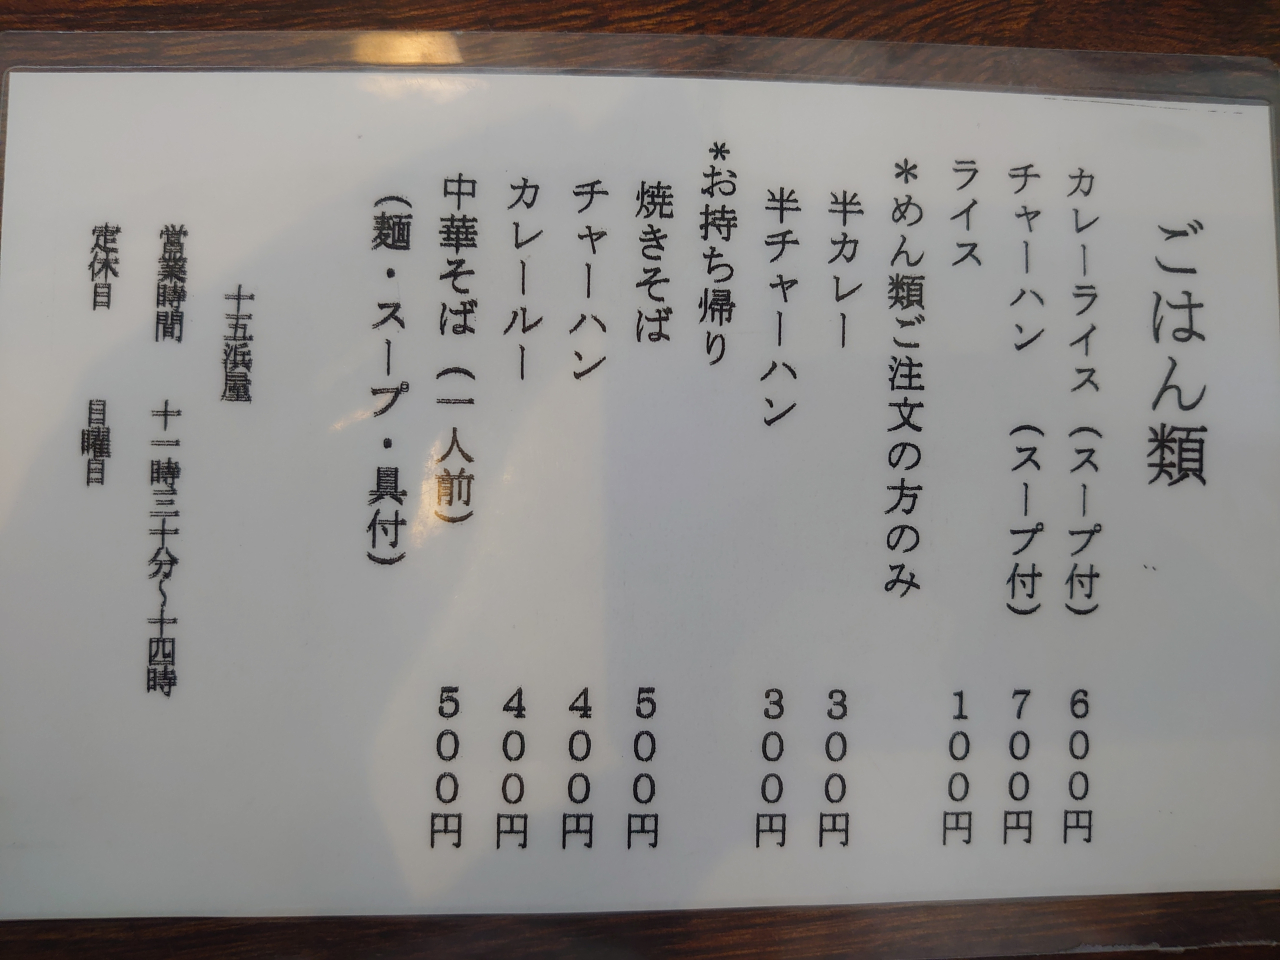 ごはん類
カレーライス（スープ付） 600円
チャーハン （スープ付） 700円
ライス 100円
＊めん類ご注文の方のみ
半カレー 300円
半チャーハン 300円
*お持ち帰り
焼きそば 500円
チャーハン 400円
カレールー 400円
中華そば（一人前） 500円
（麺・スープ・具付）
十五浜屋
営業時間 十一時三十分～十四時
定休日 日曜日